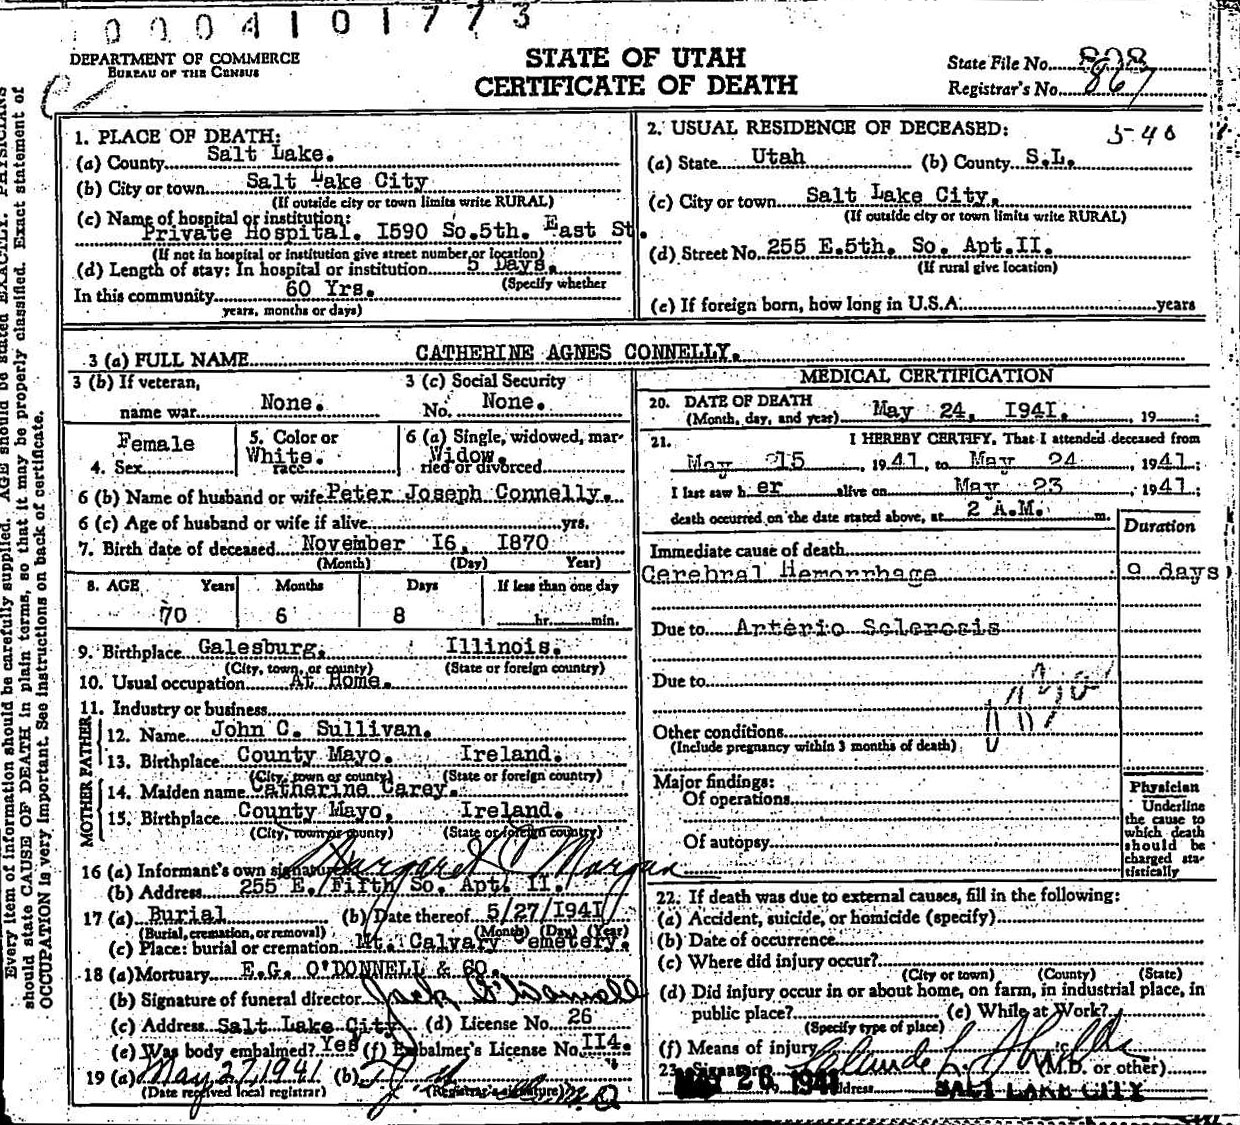 0004101773
DEPARTMENT OF COMMERCE
BUREAU OF THE CENSUS
STATE OF UTAH
CERTIFICATE OF DEATH
State File No. 808
Registrar's No. 867
Every item of information should be carefully supplied. AGE should be stated EXACTLY. PHYSICIANS
should state CAUSE OF DEATH in plain terms, so that it may be properly classified. Exact statement of
OCCUPATION is very important. See instructions on back of certificate.
1. PLACE OF DEATH:
(a) County Salt Lake.
(b) City or town Salt Lake City
(If outside city or town limits write RURAL)
(c) Name of hospital or institution:
Private Hospital. I590 So.5th. East St.
(If not in hospital or institution give street number or location)
(d) Length of stay: In hospital or institution 5 Days.
(Specify whether
In this community 60 Yrs.
years, months or days)
2. USUAL RESIDENCE OF DECEASED: 5-40
(a) State Utah (b) County S.L.
(c) City or town Salt Lake City.
(If outside city or town limits write RURAL)
(d) Street No. 255 E.5th. So. Apt.II.
(If rural give location)
(e) If foreign born, how long in U.S.A. years
3 (a) FULL NAME CATHERINE AGNES CONNELLY.
3 (b) If veteran,
name war None.
3 (c) Social Security
No. None.
4. Sex Female
5. Color or
race White.
6 (a) Single, widowed, mar-
ried or divorced Widow.
6 (b) Name of husband or wife Peter Joseph Connelly.
6 (c) Age of husband or wife if alive yrs.
7. Birth date of deceased November I6, I870
(Month) (Day) Year)
8. AGE Years Months Days If less than one day
70 6 8 hr. min.
9. Birthplace Galesburg, Illinois.
(City, town, or county) (State or foreign country)
10. Usual occupation At Home.
11. Industry or business
FATHER
12. Name John C. Sullivan.
13. Birthplace County Mayo. Ireland.
(City, town or county) (State or foreign country)
MOTHER
14. Maiden name Catherine Carey.
15. Birthplace County Mayo, Ireland.
(City, town or county) (State or foreign country)
16 (a) Informant's own signature Margaret C Morgan
(b) Address 255 E. Fifth So. Apt. II.
17 (a) Burial (b) Date thereof 5/27/I94I
(Burial, cremation, or removal) (Month) (Day) (Year)
(c) Place: burial or cremation Mt. Calvary Cemetery.
18 (a) Mortuary E.G. O'DONNELL & CO.
(b) Signature of funeral director Jack O'Donnell
(c) Address Salt Lake City. (d) License No. 26
(e) Was body embalmed? Yes (f) Embalmer's License No. II4.
19 (a) May 27, 1941 (b)
(Date received local registrar) (Registrar's signature)
MEDICAL CERTIFICATION
20. DATE OF DEATH
(Month, day, and year) May 24, I94I. , 19 ;
21. I HEREBY CERTIFY, That I attended deceased from
May 15 , 1941, to May 24 , 1941;
I last saw her alive on May 23 , 1941;
death occurred on the date stated above, at 2 A.M. m.
Duration
Immediate cause of death
Cerebral Hemorrhage 9 days
Due to Arterio Sclerosis
Due to
Other conditions
(Include pregnancy within 3 months of death)
Major findings:
Of operations
Of autopsy
Physician
Underline
the cause to
which death
should be
charged sta-
tistically
22. If death was due to external causes, fill in the following:
(a) Accident, suicide, or homicide (specify)
(b) Date of occurrence
(c) Where did injury occur?
(City or town) (County) (State)
(d) Did injury occur in or about home, on farm, in industrial place, in
public place? (e) While at Work?
(Specify type of place)
(f) Means of injury
23. Signature (M.D. or other)
MAY 26 1941 Address SALT LAKE CITY